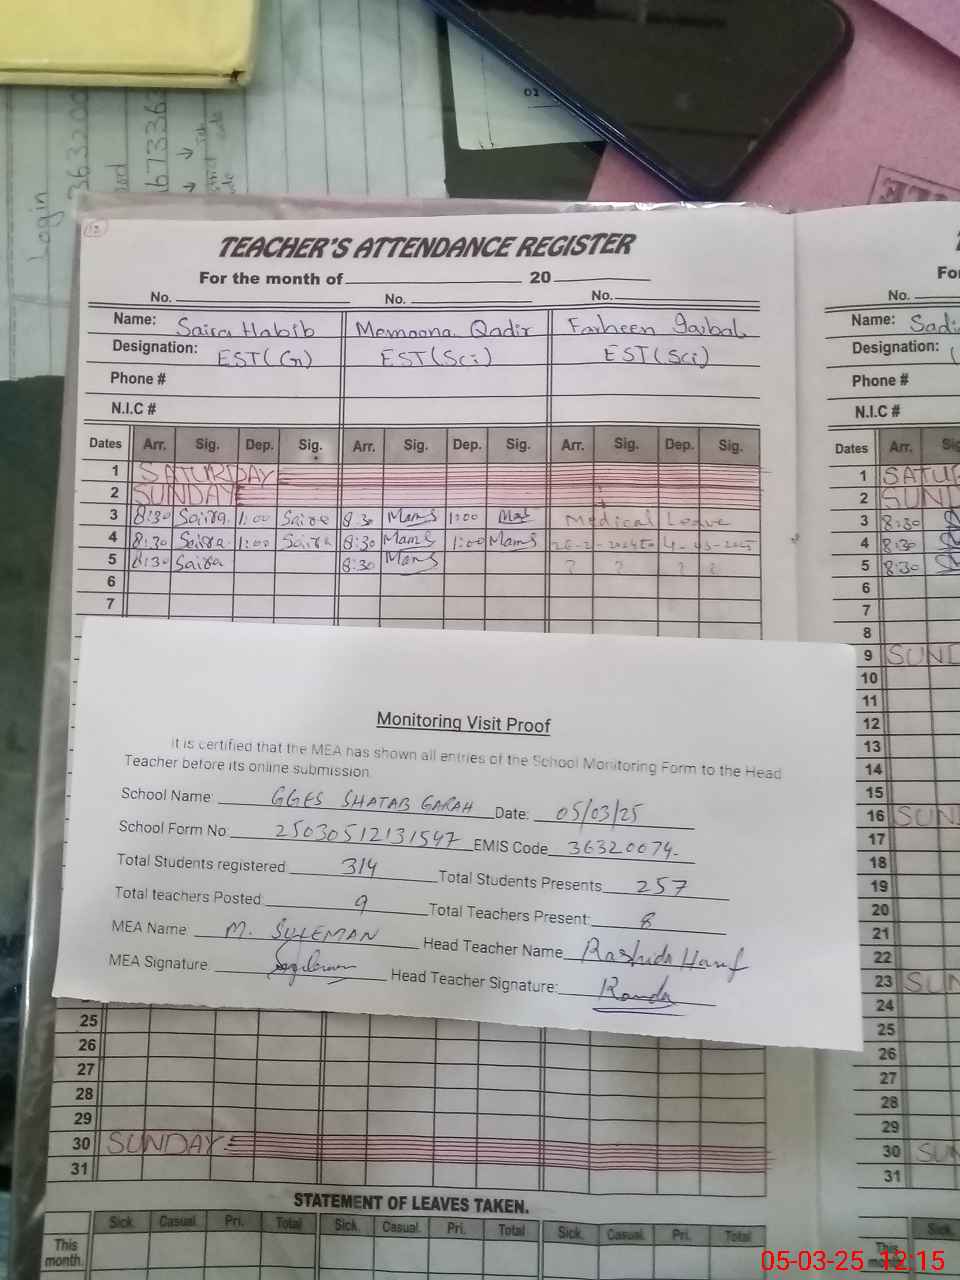 Login
TEACHER'S ATTENDANCE REGISTER
For the month of 20
No. No. No.
Name: Saira Habib Memoona Qadir Farheen Iqbal
Designation: EST(G) EST(Sci) EST(Sci)
Phone #
N.I.C #
Dates Arr. Sig. Dep. Sig. Arr. Sig. Dep. Sig. Arr. Sig. Dep. Sig.
1 SATURDAY
2 SUNDAY
3 8:30 Saira 1:00 Saira 8:30 1:00 Medical Leave
4 8:30 Saira 1:00 Saira 8:30 1:00
5 8:30 Saira 8:30 ? ? ? ?
6
7
Monitoring Visit Proof
It is certified that the MEA has shown all entries of the School Monitoring Form to the Head
Teacher before its online submission.
School Name: GGES SHATAB GARAH Date: 05/03/25
School Form No: 25030512131547 EMIS Code 36320074
Total Students registered: 314 Total Students Presents 257
Total teachers Posted: 9 Total Teachers Present: 8
MEA Name: M. SULEMAN Head Teacher Name Rashida Hanif
MEA Signature: Head Teacher Signature:
25
26
27
28
29
30 SUNDAY
31
STATEMENT OF LEAVES TAKEN.
Sick. Casual. Pri. Total Sick. Casual. Pri. Total Sick. Casual. Pri. Total
This
month.
No.
Name:
Designation:
Phone #
N.I.C #
Dates Arr.
1
2
3 8:30
4 8:30
5 8:30
6
7
8
9
10
11
12
13
14
15
16
17
18
19
20
21
22
23
24
25
26
27
28
29
30
31
Sick.
This
05-03-25 12:15